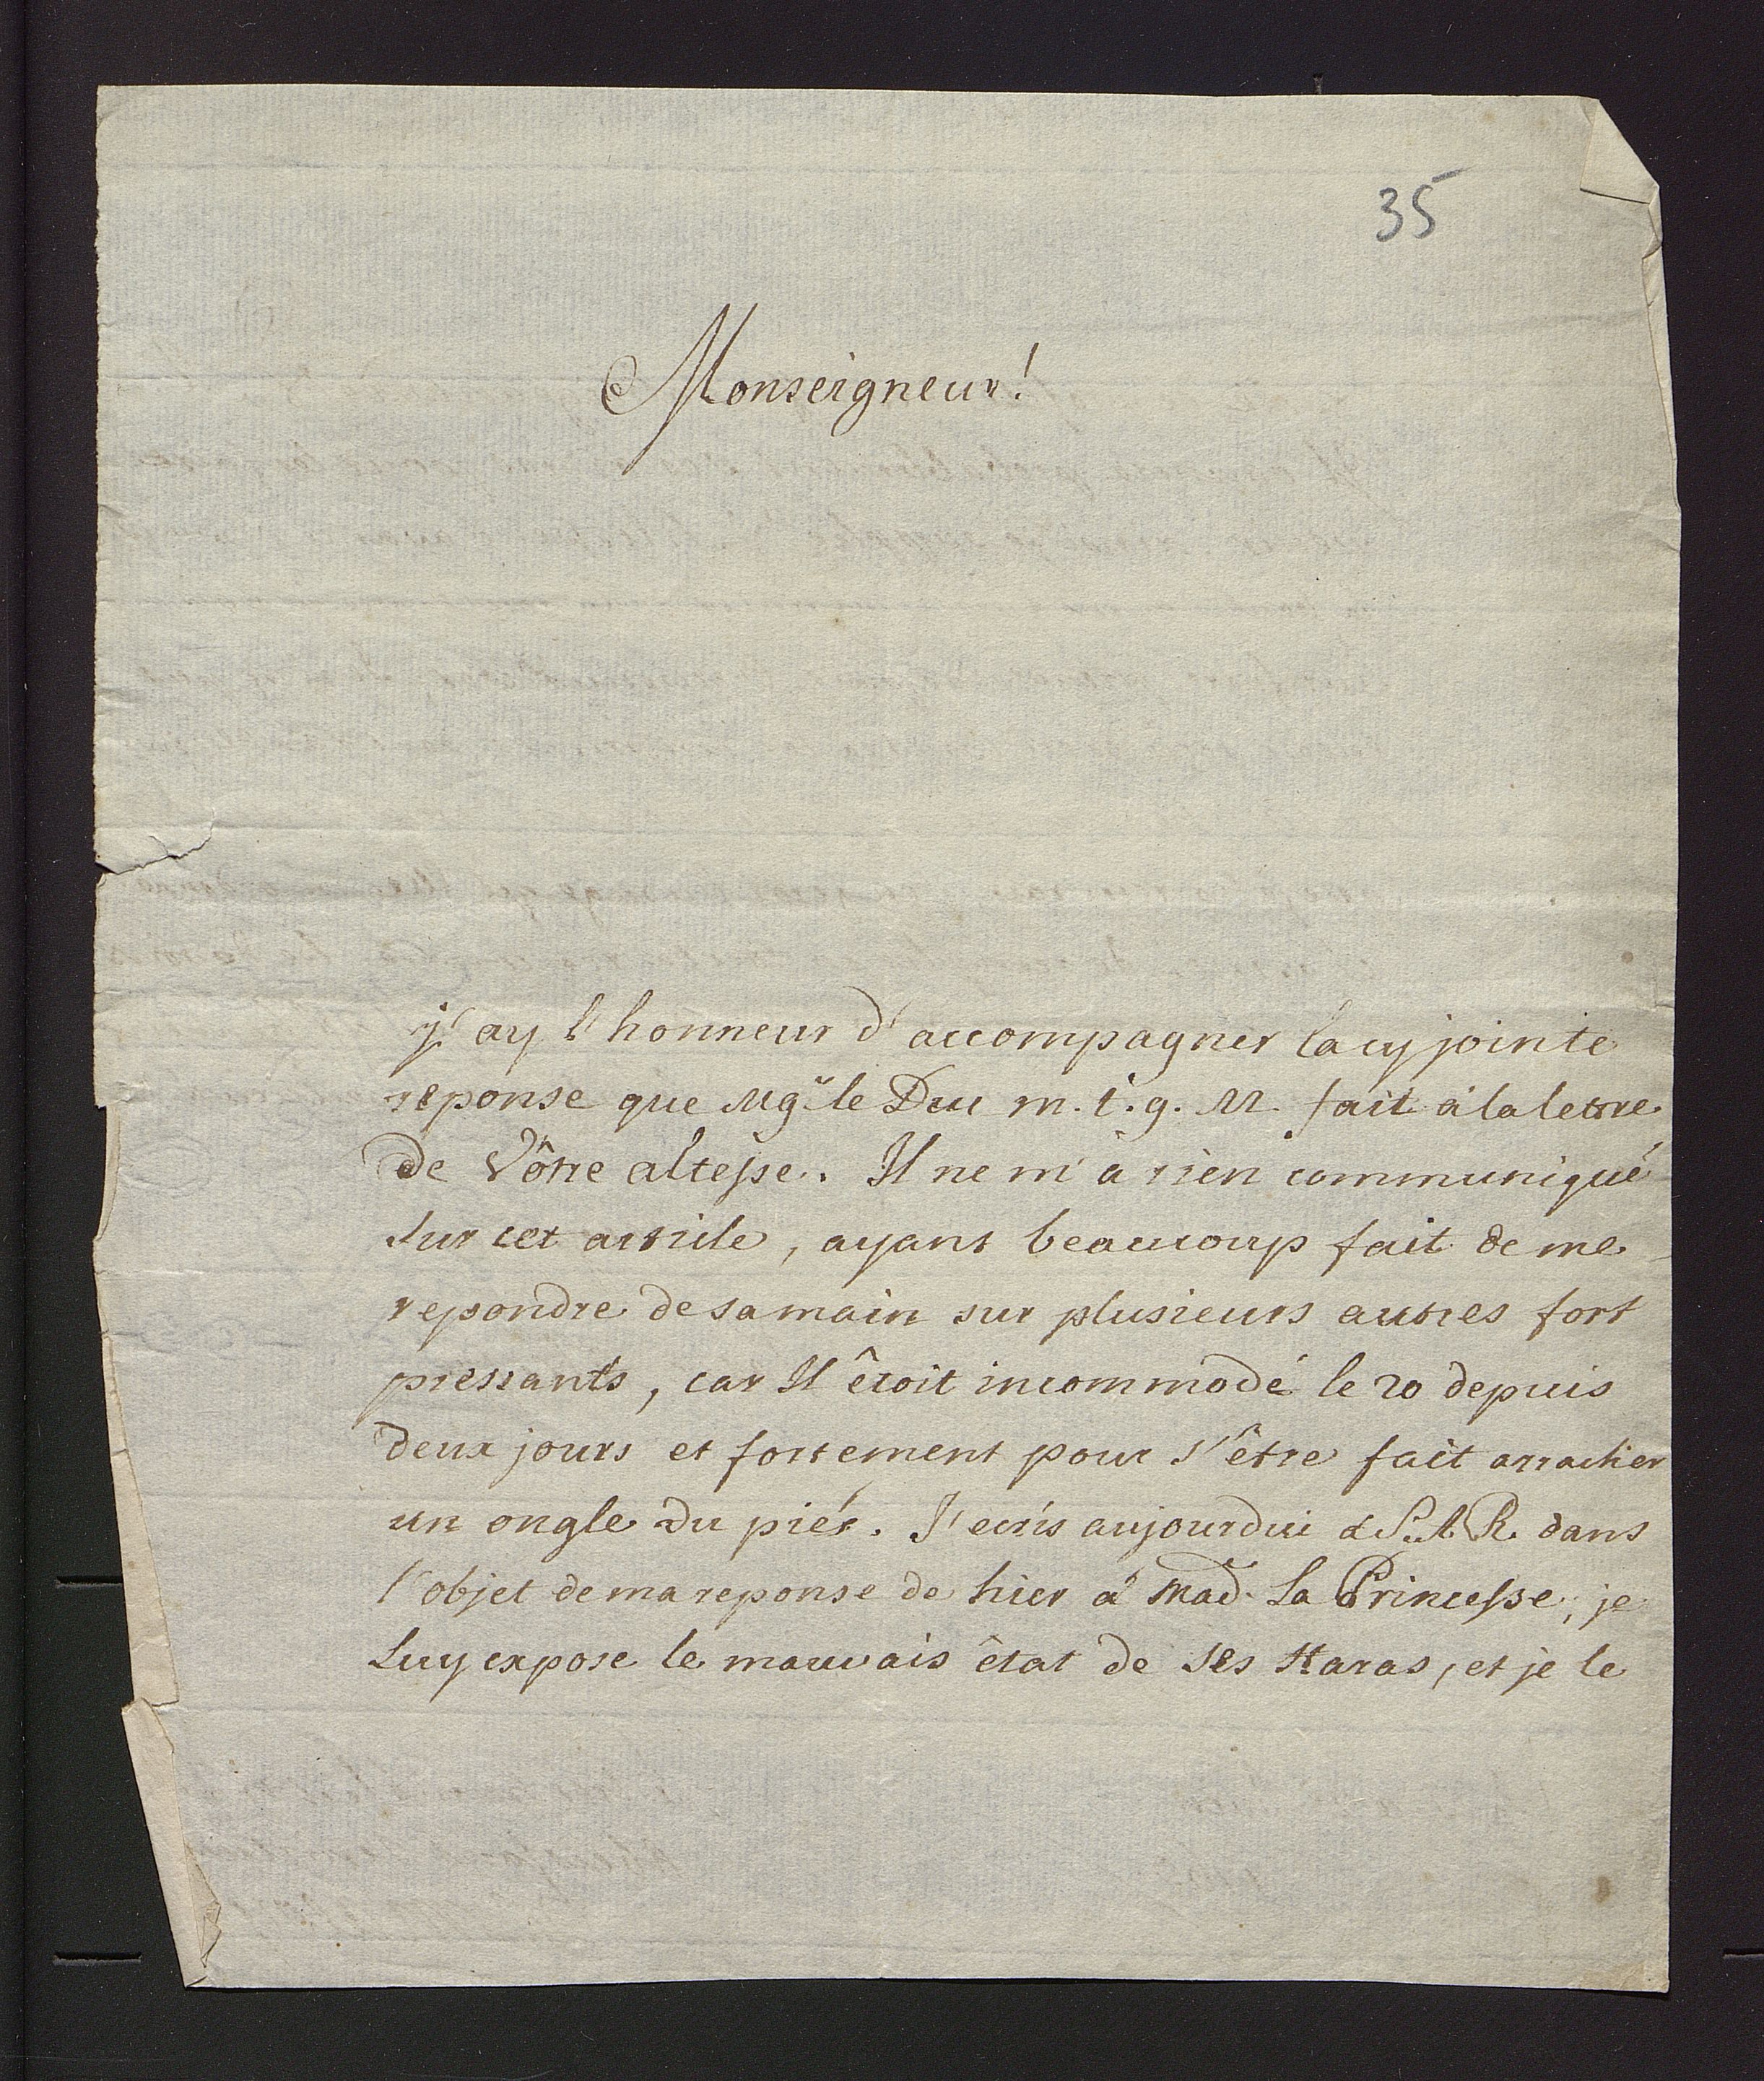 35
Monseigneur!
j'ay l'honneur d'accompagner la cy jointe
reponse que Mgr. le Duc m. t. g. M. fait à la lettre
de Vôtre altesse. Il ne m'a rien communiqué
sur cet article, ayant beaucoup fait de me
repondre de sa main sur plusieurs autres fort
pressants, car Il êtoit incommodé le 20 depuis
deux jours et fortement pour s'être fait arracher
un ongle du piét. J'ecris aujourdui à S. A. R. dans
l'objet de ma reponse de hier à Mad. la Princesse, je
luy expose le mauvais êtat de ses Haras, et je le